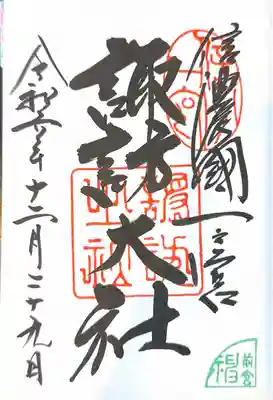 信濃國一之宮
諏訪大社
令和六年十二月二十九日
前宮